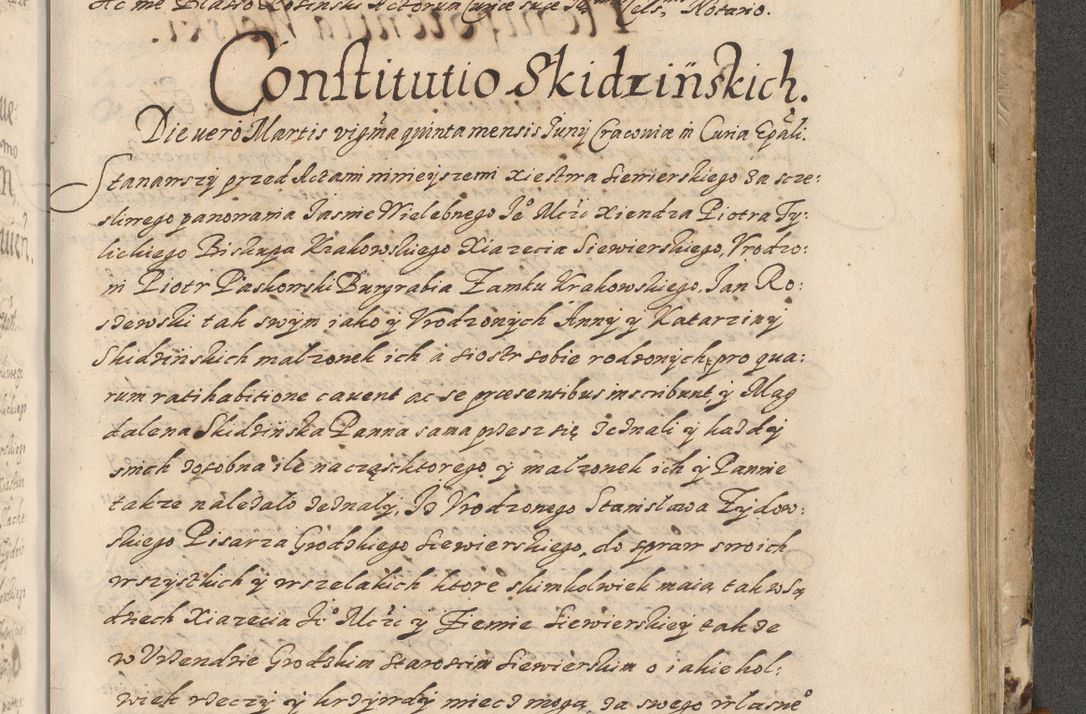 Ac me Blasio Kosinski Actorum Curiæ suæ Notario.
Constitutio Skidzińskich.
Die vero Martis vigma quinta mensis Junij Cracoviæ in Curia Epali.
Stanawszy przed Actami ninieyszemi Xiestwa Siewierskiego za scze:
sliwego panowania Jasnie Wielebnego Je° Mczi Xiendza Piotra Ty:
lickiego Biskupa Krakowskiego Xiazecia Siewierskiego, Vrodzo:
ni Piotr Piaskowski Burgrabia Zamku Krakowskiego, Jan Ro:
sdewski tak swym iako y Vrodzonych Anny y Katarziny
Skidzińskich malzonek ich a siostr sobie rodzonych, pro qua:
rum ratihabitione cavent ac se præsentibus inscribunt, y Mag
dalena Skidzińska Panna sama przez się zeznali y kazdy
snich zosobna ile na częsc ktorego y malzonek ich y Pannie
takze nalezalo zeznaly, Iz Vrodzonego Stanislawa Zydow:
skiego Pisarza Grodzkiego Siewierskiego, do spraw swoich
wszystkich y wszelakich ktore skimkolwiek maią tak w Są
dziech Xiazecia Je° Mczi y Ziemie Siewierskiey takze
w Vrzendzie Grodzkim Starostim Siewierskim o iakiekol:
wiek rzeczy y krzywdy miecz mogą, za swego wlasne°